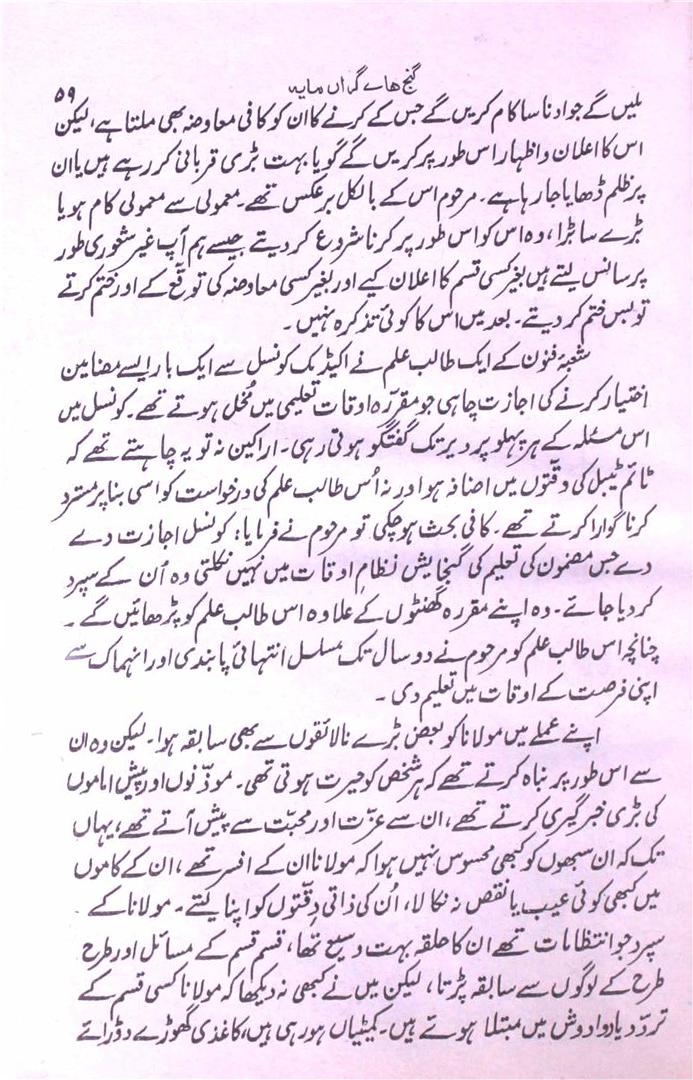 گنج ہائے گراں مایہ
۵۹
ملیں گے جو ادنا سا کام کریں گے جس کے کرنے کا ان کو کافی معاوضہ بھی ملتا ہے، لیکن
اس کا اعلان و اظہار اس طور پر کریں گے گویا بہت بڑی قربانی کر رہے ہیں یا ان
پر ظلم ڈھایا جا رہا ہے۔ مرحوم اس کے بالکل برعکس تھے۔ معمولی سے معمولی کام ہو یا
بڑے سا بڑا، وہ اس کو اس طور پر کرنا شروع کر دیتے جیسے ہم آپ غیر شعوری طور
پر سانس لیتے ہیں بغیر کسی قسم کا اعلان کیے اور بغیر کسی معاوضہ کی توقع کے اور ختم کرتے
تو بس ختم کر دیتے۔ بعد میں اس کا کوئی تذکرہ نہیں۔
شعبۂ فنون کے ایک طالب علم نے اکیڈمک کونسل سے ایک بار ایسے مضامین
اختیار کرنے کی اجازت چاہی جو مقررہ اوقات تعلیمی میں مُخل ہوتے تھے۔ کونسل میں
اس مسئلہ کے ہر پہلو پر دیر تک گفتگو ہوتی رہی۔ اراکین نہ تو یہ چاہتے تھے کہ
ٹائم ٹیبل کی دقّتوں میں اضافہ ہو اور نہ اُس طالب علم کی درخواست کو اسی بنا پر مسترد
کرنا گوارا کرتے تھے۔ کافی بحث ہو چکی تو مرحوم نے فرمایا: کونسل اجازت دے
دے جس مضمون کی تعلیم کی گنجایش نظامِ اوقات میں نہیں نکلتی وہ اُن کے سپرد
کر دیا جائے۔ وہ اپنے مقررہ گھنٹوں کے علاوہ اس طالب علم کو پڑھائیں گے۔
چنانچہ اس طالب علم کو مرحوم نے دو سال تک مسلسل انتہائی پابندی اور انہماک سے
اپنی فرصت کے اوقات میں تعلیم دی۔
اپنے عملے میں مولانا کو بعض بڑے نالائقوں سے بھی سابقہ ہوا۔ لیکن وہ ان
سے اس طور پر نباہ کرتے تھے کہ ہر شخص کو حیرت ہوتی تھی۔ موذّنوں اور پیش اماموں
کی بڑی خبر گیری کرتے تھے، ان سے عزّت اور محبّت سے پیش آتے تھے، یہاں
تک کہ ان سبھوں کو کبھی محسوس نہیں ہوا کہ مولانا ان کے افسر تھے، ان کے کاموں
میں کبھی کوئی عیب یا نقص نہ نکالا، اُن کی ذاتی دِقّتوں کو اپنا لیتے۔ مولانا کے
سپرد جو انتظامات تھے ان کا حلقہ بہت وسیع تھا، قسم قسم کے مسائل اور طرح
طرح کے لوگوں سے سابقہ پڑتا، لیکن میں نے کبھی نہ دیکھا کہ مولانا کسی قسم کے
تردّد یا دوا دوش میں مبتلا ہوئے ہیں۔ کمیٹیاں ہو رہی ہیں، کاغذی گھوڑے دوڑائے